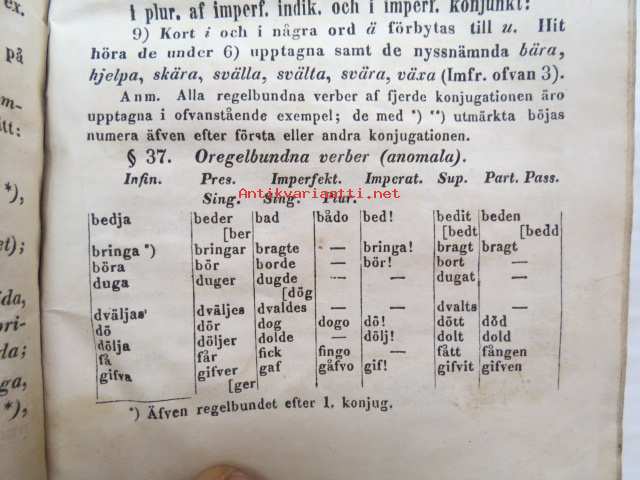 ex.
på
m-
itt:
*),
et);
ida,
ori-
da;
ga,
*),
i plur. af imperf. indik. och i imperf. konjunkt:
9) Kort i och i några ord ä förbytas till u. Hit
höra de under 6) upptagna samt de nyssnämnda bära,
hjelpa, skära, svälla, svälta, svära, växa (Imfr. ofvan 3).
Anm. Alla regelbundna verber af fjerde konjugationen äro
upptagna i ofvanstående exempel; de med *) **) utmärkta böjas
numera äfven efter första eller andra konjugationen.
§ 37. Oregelbundna verber (anomala).
Infin. Pres. Imperfekt. Imperat. Sup. Part. Pass.
Sing. Sing. Plur.
Antikvariantti.net
bedja beder bad bådo bed! bedit beden
[ber [bedt [bedd
bringa *) bringar bragte — bringa! bragt bragt
böra bör borde — bör! bort —
duga duger dugde — — dugat —
[dög
dväljas dväljes dvaldes — — dvalts —
dö dör dog dogo dö! dött död
dölja döljer dolde — dölj! dolt dold
få får fick fingo — fått fången
gifva gifver gaf gåfvo gif! gifvit gifven
[ger
*) Äfven regelbundet efter 1. konjug.